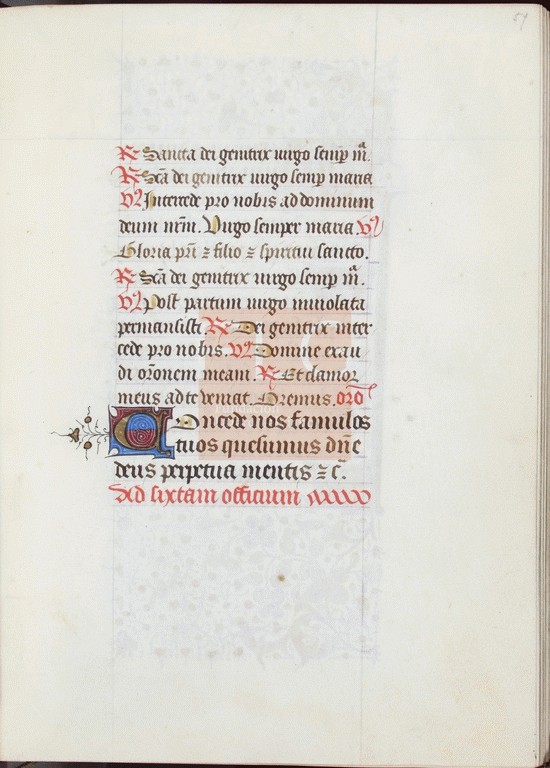 51
R Sancta dei genitrix uirgo semp mª.
R Scã dei genitrix uirgo semp maria
V Intercede pro nobis ad dominum
deum nrm̃. Uirgo semper maria. V
Gloria pri̅ ⁊ filio ⁊ spiritui sancto.
R Scã dei genitrix uirgo semp mª.
V Post partum uirgo inuiolata
permansisti. R Dei genitrix inter
cede pro nobis. V Domine exau
di or̃onem meam. R Et clamor
meus ad te ueniat. Oremus. orõ
Concede nos famulos
tuos quesumus dñe
deus perpetua mentis ⁊ c̃.
Ad sixtam officium